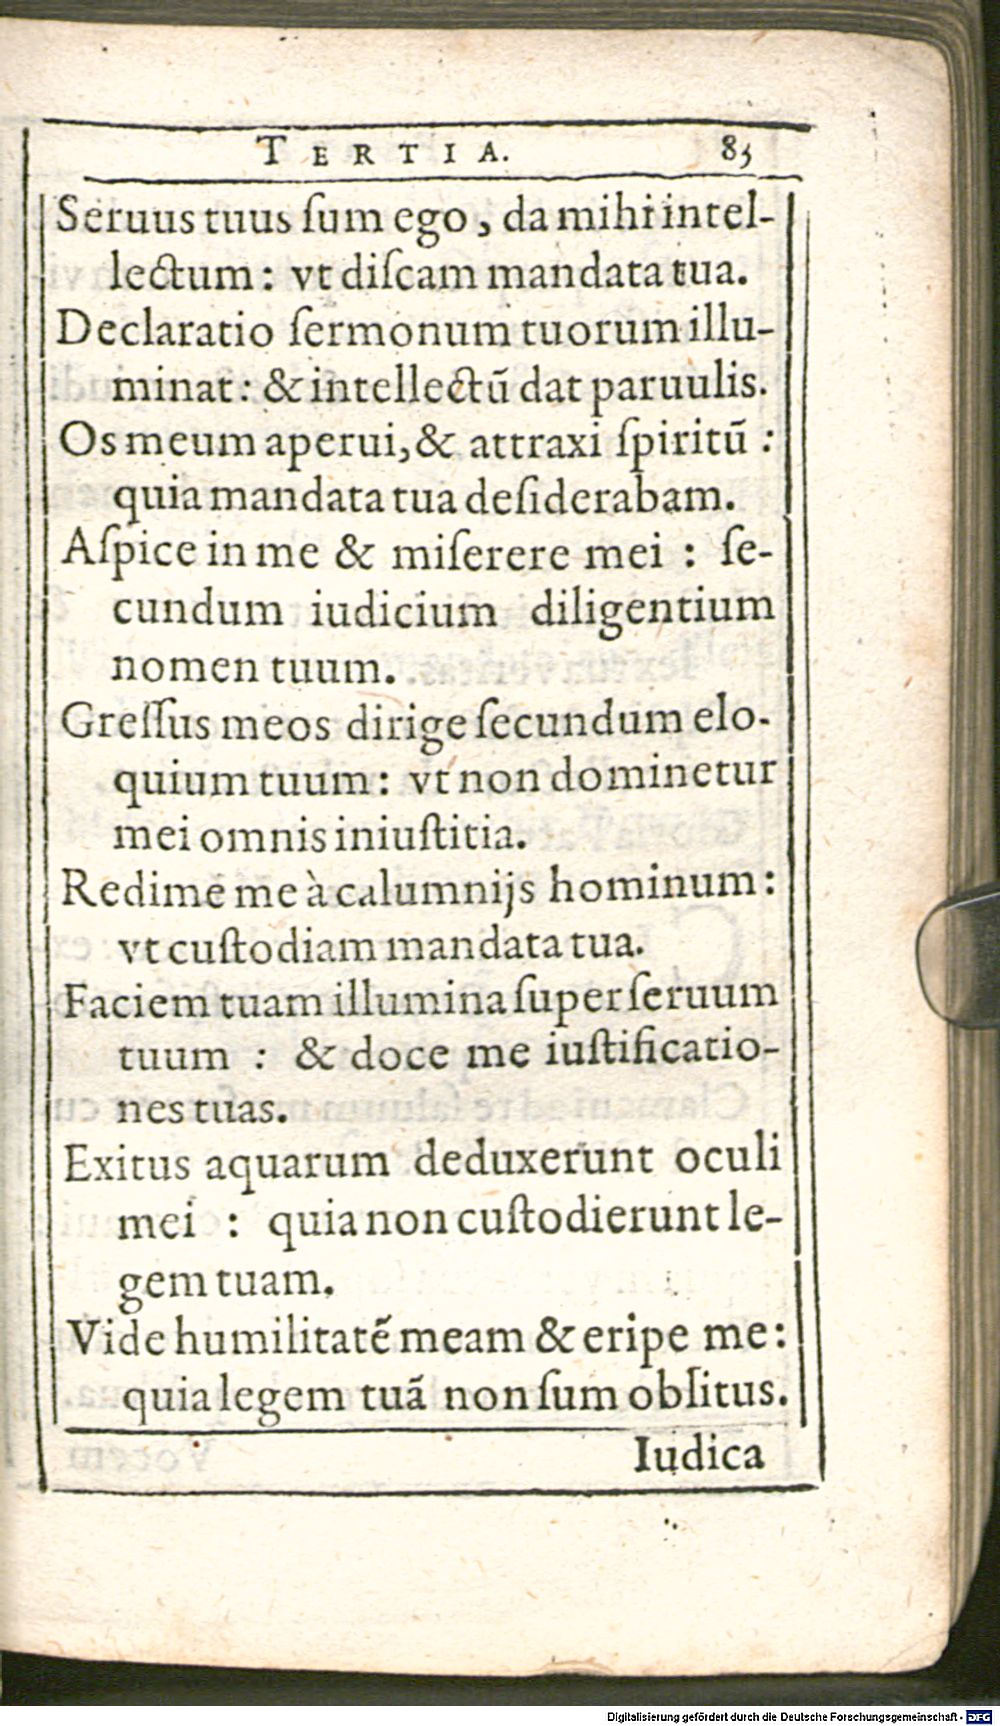 TERTIA. 85
Seruus tuus ſum ego, da mihi intel-
lectum: vt diſcam mandata tua.
Declaratio ſermonum tuorum illu-
minat: & intellectũ dat paruulis.
Os meum aperui, & attraxi ſpiritũ:
quia mandata tua deſiderabam.
Aſpice in me & miſerere mei: ſe-
cundum iudicium diligentium
nomen tuum.
Greſſus meos dirige ſecundum elo-
quium tuum: vt non dominetur
mei omnis iniuſtitia.
Redime me à calumnijs hominum:
vt cuſtodiam mandata tua.
Faciem tuam illumina ſuper ſeruum
tuum: & doce me iuſtificatio-
nes tuas.
Exitus aquarum deduxerunt oculi
mei: quia non cuſtodierunt le-
gem tuam.
Vide humilitatẽ meam & eripe me:
quia legem tuã non ſum oblitus.
Iudica
Digitalisierung gefördert durch die Deutsche Forschungsgemeinschaft - DFG